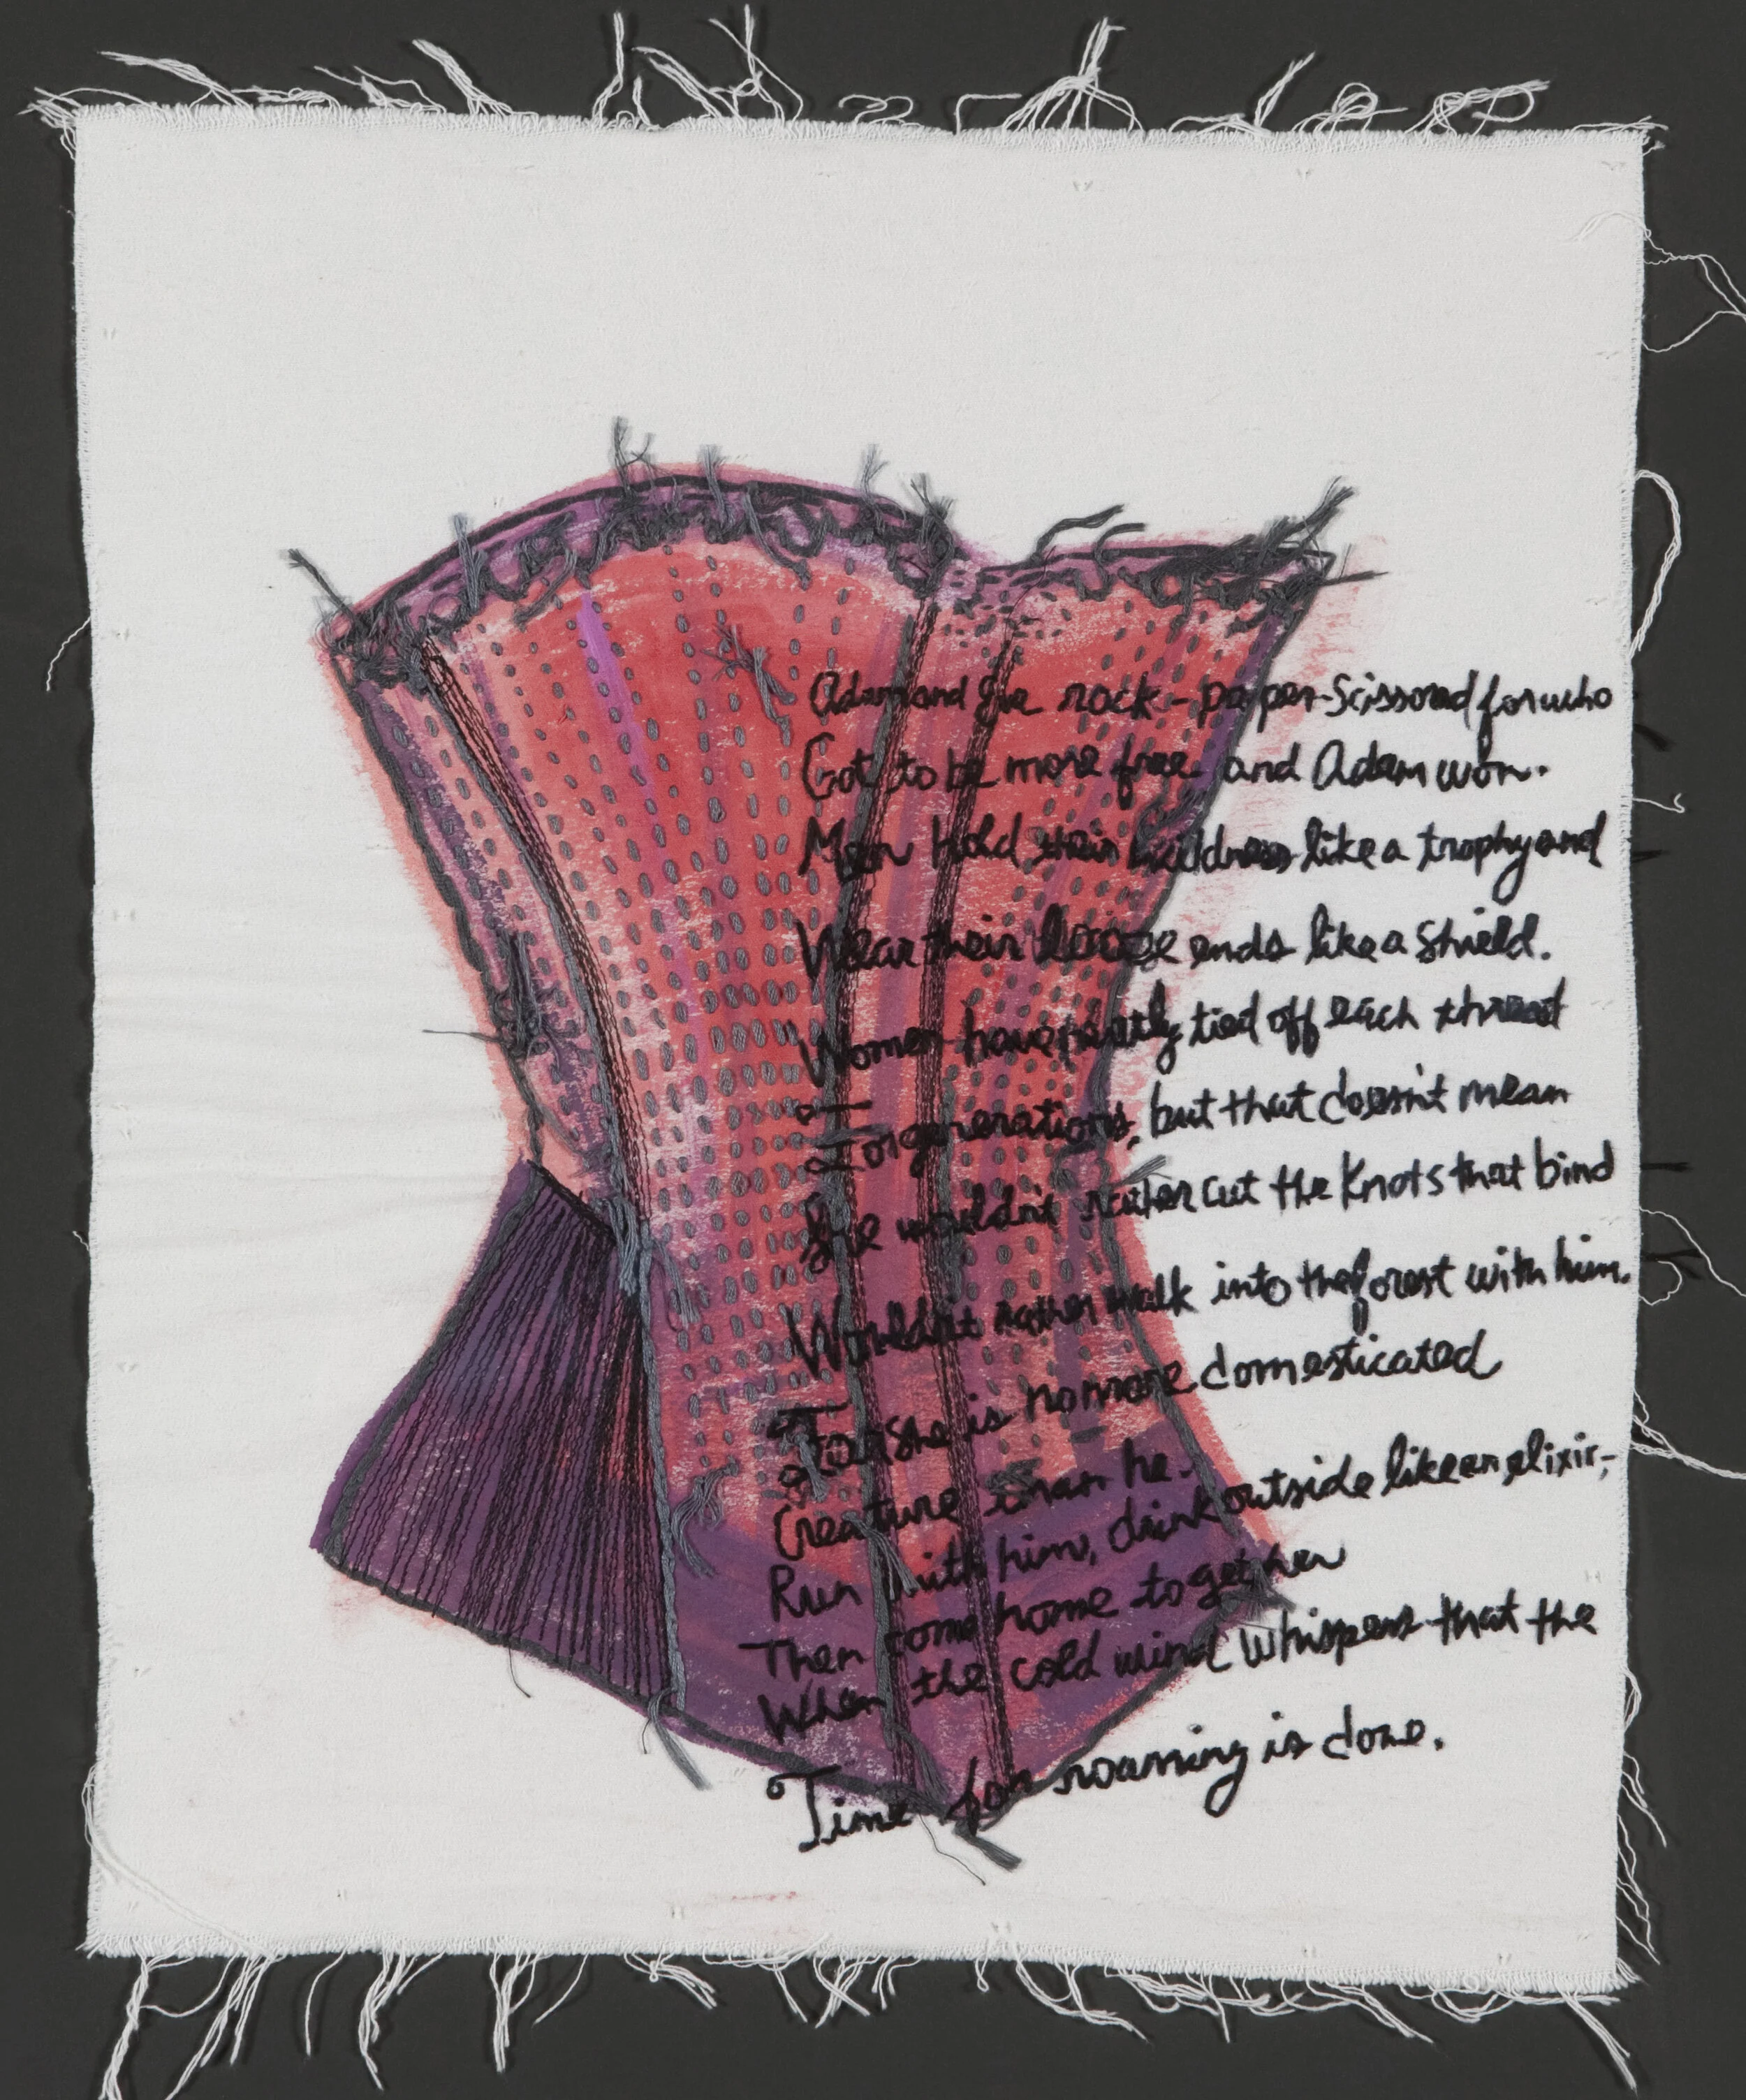 Adam and Eve rock-paper-Scissored for who
Got to be more free and Adam won.
Men hold their wildness like a trophy and
Wear their loose ends like a Shield.
Women have neatly tied off each thread
For generations, but that doesn't mean
Eve wouldn't rather cut the Knots that bind
Wouldn't rather walk into the forest with him.
For She is no more domesticated
Creature than he.
Run with him, drink outside like an elixir,
Then come home together
When the cold wind Whispers that the
Time for roaming is done.